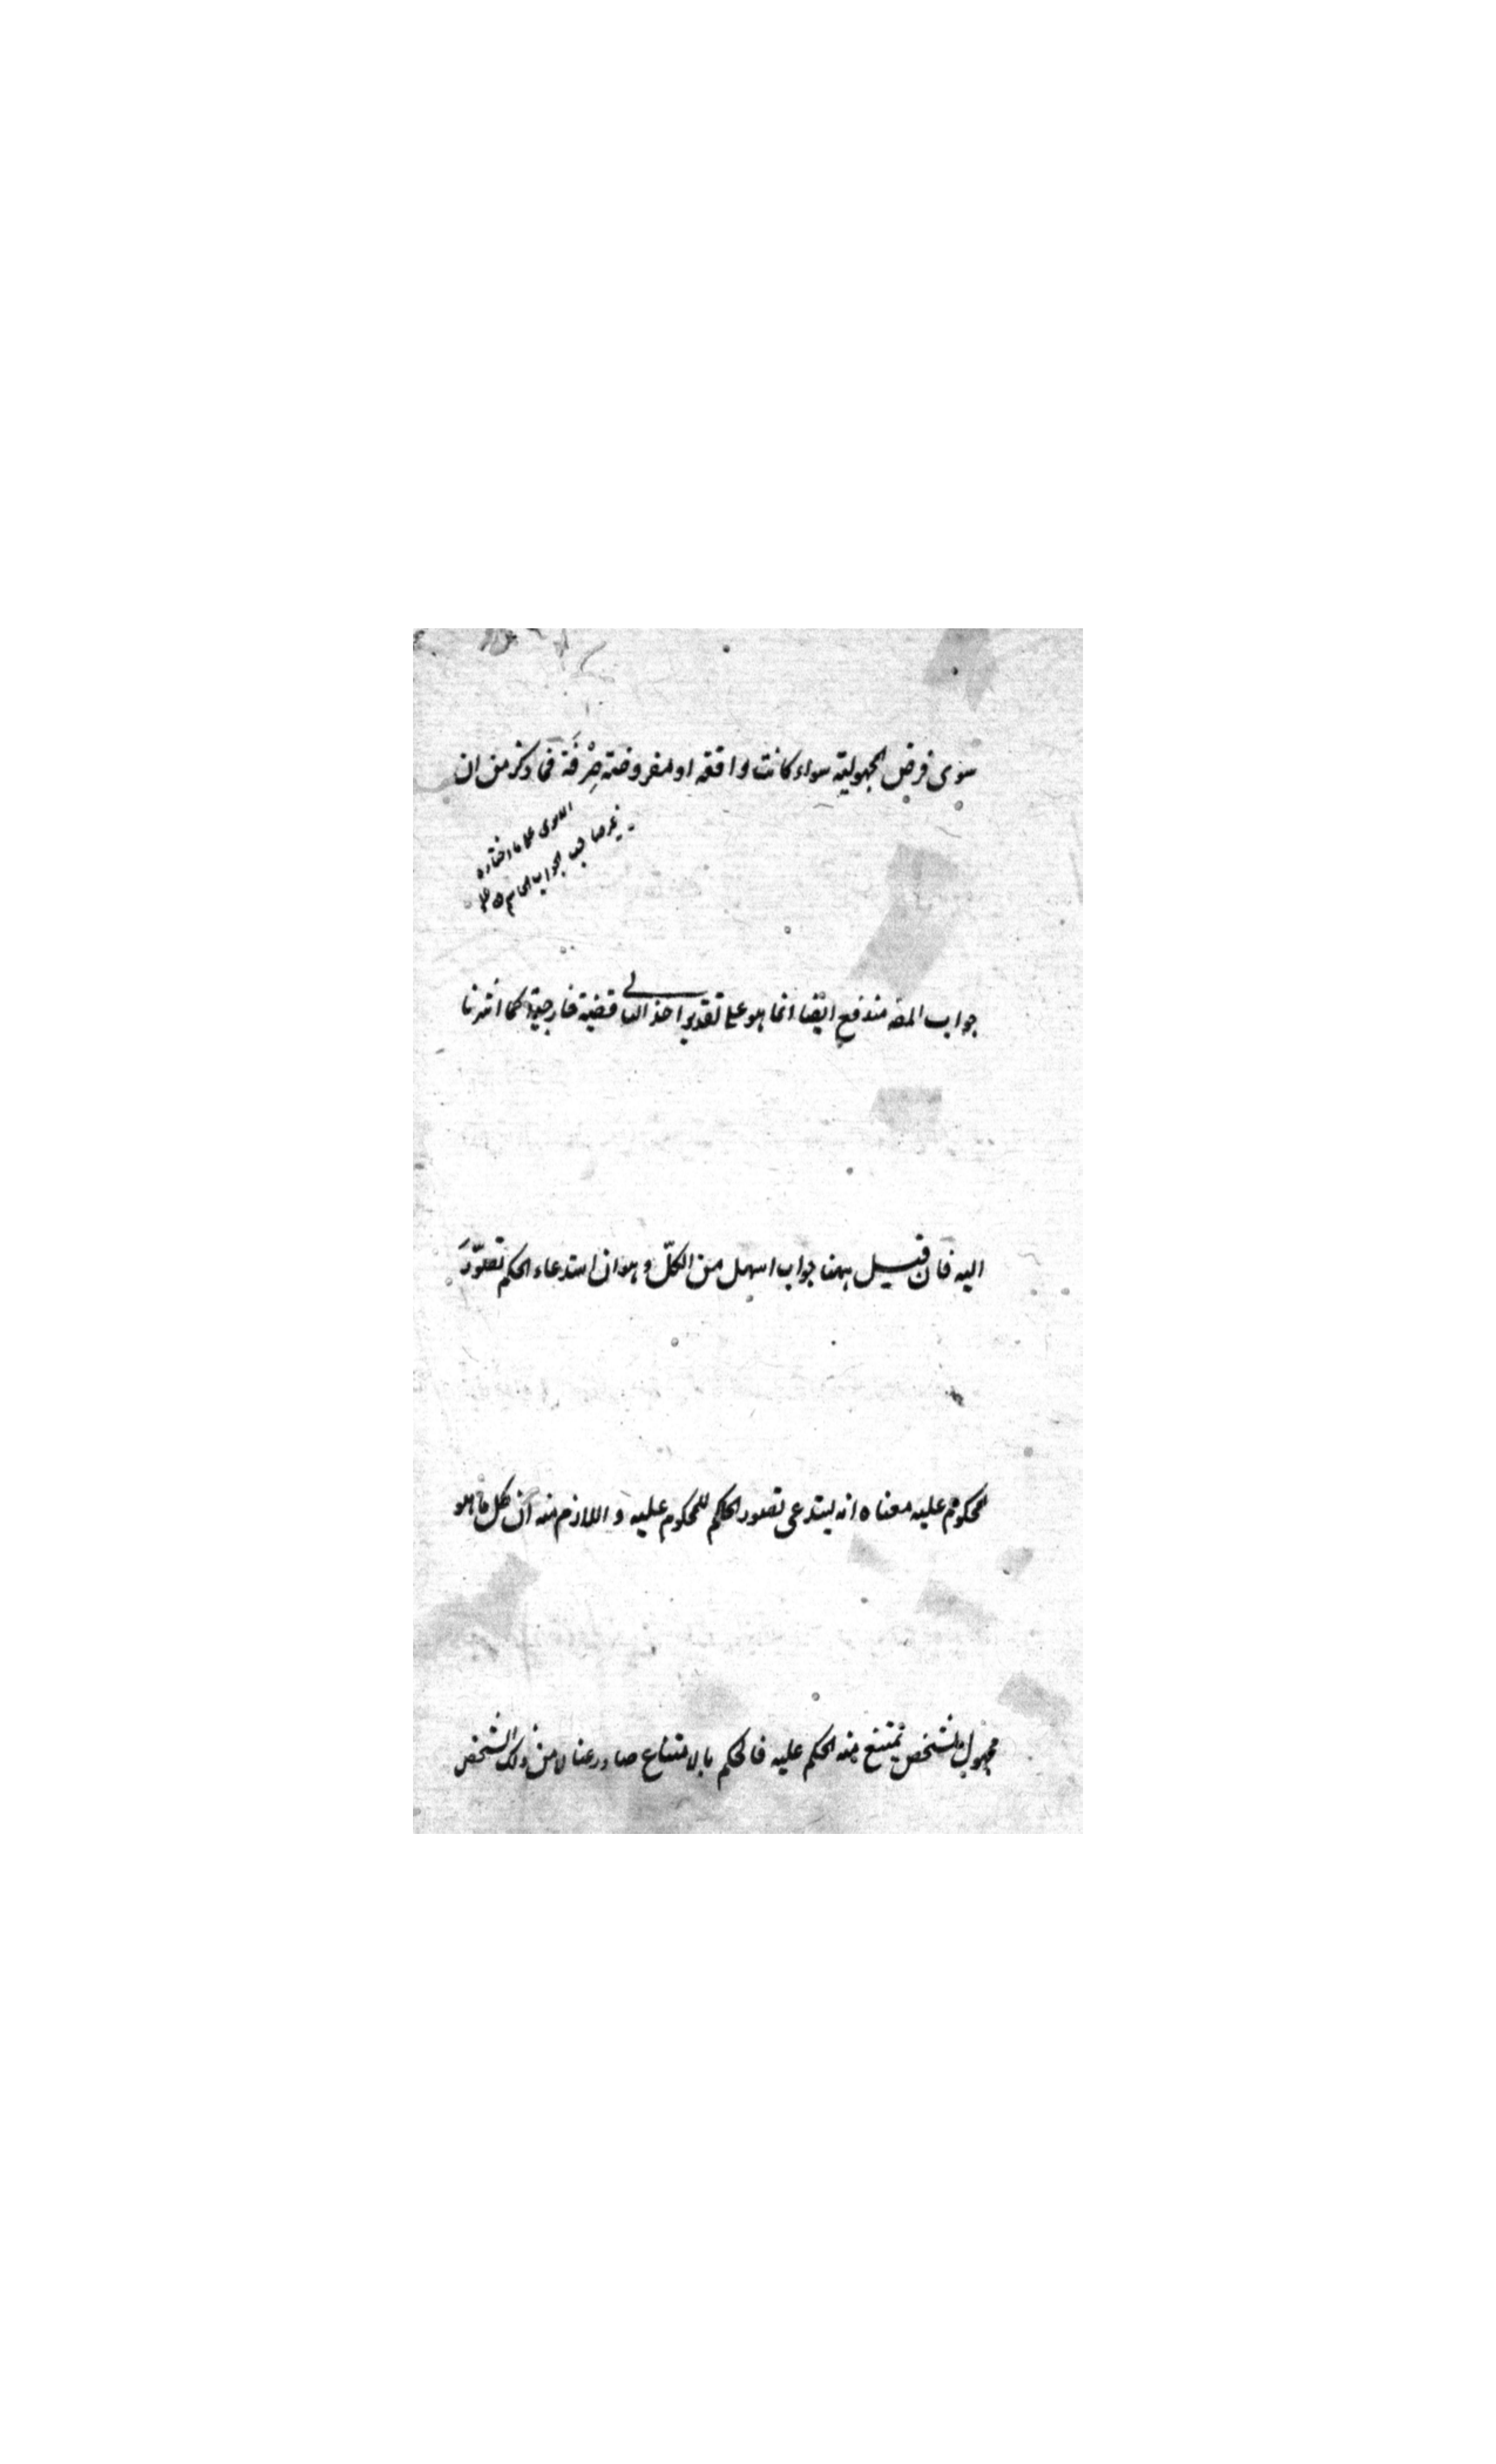 سوى فرض المجهولية سواء كانت واقعة او مفروضة صِرْفَة فما ذكر من ان
جواب المصه مندفع ايضا انما هو على تقدير اخذ التالى قضية خارجية كما اشرنا
اليه فان قيل ههنا جواب اسهل من الكلّ وهو ان استدعاء الحكم تصوّرَ
المحكوم عليه معناه انه يستدعى تصور الحاكم للمحكوم عليه و اللازم منه ان كل ما هو
مجهول لشخص يمتنع منه الحكم عليه فالحكم بالامتناع صادر عنا لا من ذلك الشخص